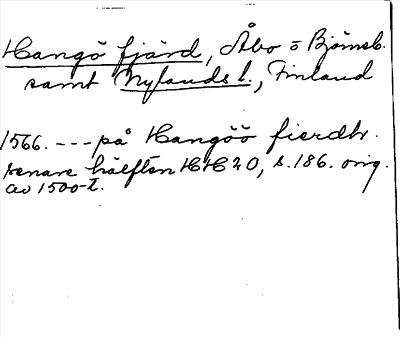 Hangö fjärd, Åbo o Björneb.
samt Nylands l., Finland
1566. --- på Hangöö fierdh.
senare hälften HH 20, s. 186. orig.
av 1500-t.